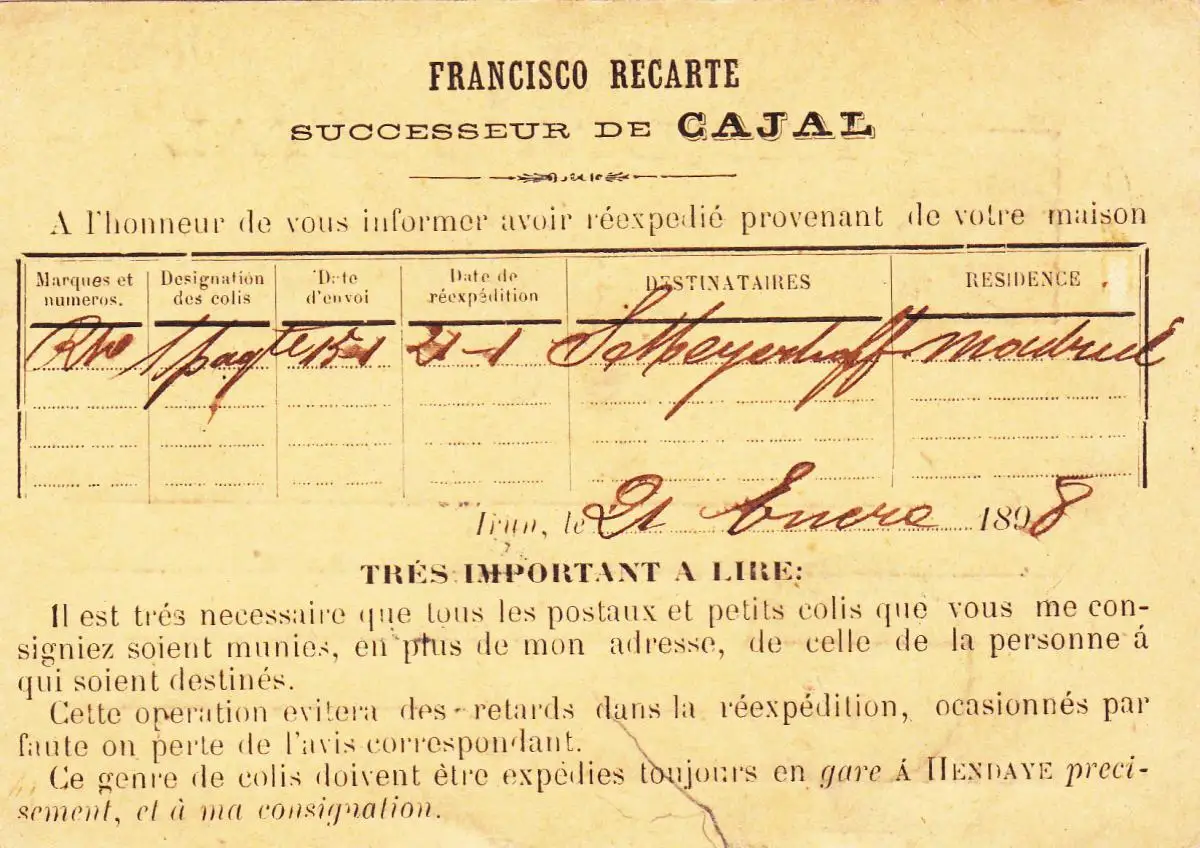 FRANCISCO RECARTE
SUCCESSEUR DE CAJAL
A l'honneur de vous informer avoir réexpedié provenant de votre maison
Marques et numeros. Designation des colis Date d'envoi Date de réexpédition DESTINATAIRES RESIDENCE
1 pagte 15-1 21-1 Madrid
Irun, le 21 Enero 1898
TRÉS IMPORTANT A LIRE:
Il est trés necessaire que tous les postaux et petits colis que vous me con-
signiez soient munies, en plus de mon adresse, de celle de la personne á
qui soient destinés.
Cette operation evitera des retards dans la réexpédition, ocasionnés par
faute on perte de l'avis correspondant.
Ce genre de colis doivent être expédies toujours en gare Á HENDAYE preci-
sement, et à ma consignation.